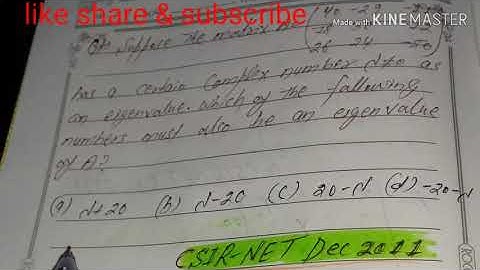 like share & subscribe
Made with KINEMASTER
Suppose the matrix A
40 -29
-18
26 24 -50
has a certain complex number λ≠0 as
an eigenvalue. which of the following
numbers must also be an eigenvalue
of A?
(a) λ+20 (b) λ-20 (c) 20-λ (d) -20-λ
CSIR-NET Dec 2011